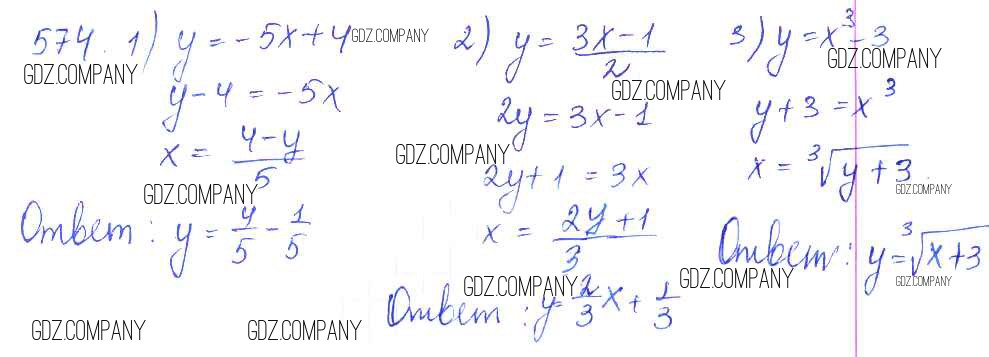 574. 1) y = -5x+4
y-4 = -5x
x = (4-y)/5
Ответ: y = 4/5 - 1/5
2) y = (3x-1)/2
2y = 3x-1
2y+1 = 3x
x = (2y+1)/3
Ответ: y = 2/3 x + 1/3
3) y = x³-3
y+3 = x³
x = ³√(y+3)
Ответ: y = ³√(x+3)
GDZ.COMPANY
GDZ.COMPANY
GDZ.COMPANY
GDZ.COMPANY
GDZ.COMPANY
GDZ.COMPANY
GDZ.COMPANY
GDZ.COMPANY
GDZ.COMPANY
GDZ.COMPANY
GDZ.COMPANY
GDZ.COMPANY
GDZ.COMPANY